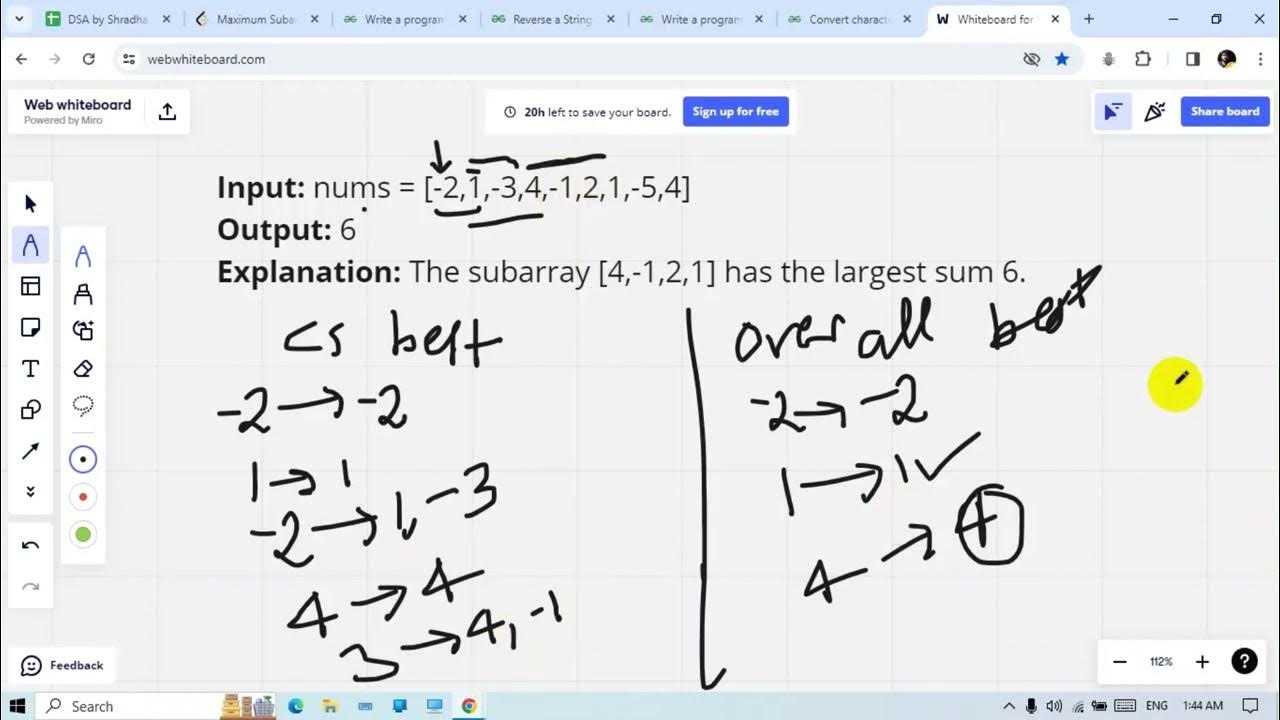 DSA by Shradha
Maximum Suba
Write a program
Reverse a String
Write a program
Convert charact
Whiteboard for
webwhiteboard.com
Web whiteboard
Powered by Miro
20h left to save your board.
Sign up for free
Share board
Input: nums = [-2,1,-3,4,-1,2,1,-5,4]
Output: 6
Explanation: The subarray [4,-1,2,1] has the largest sum 6.
cs best
overall best
-2 → -2
-2 → -2
1 → 1
1 → 1 ✓
-2 → 1, -3
4 → 4
4 → 4
3 → 4, -1
Feedback
112%
Search
ENG
1:44 AM